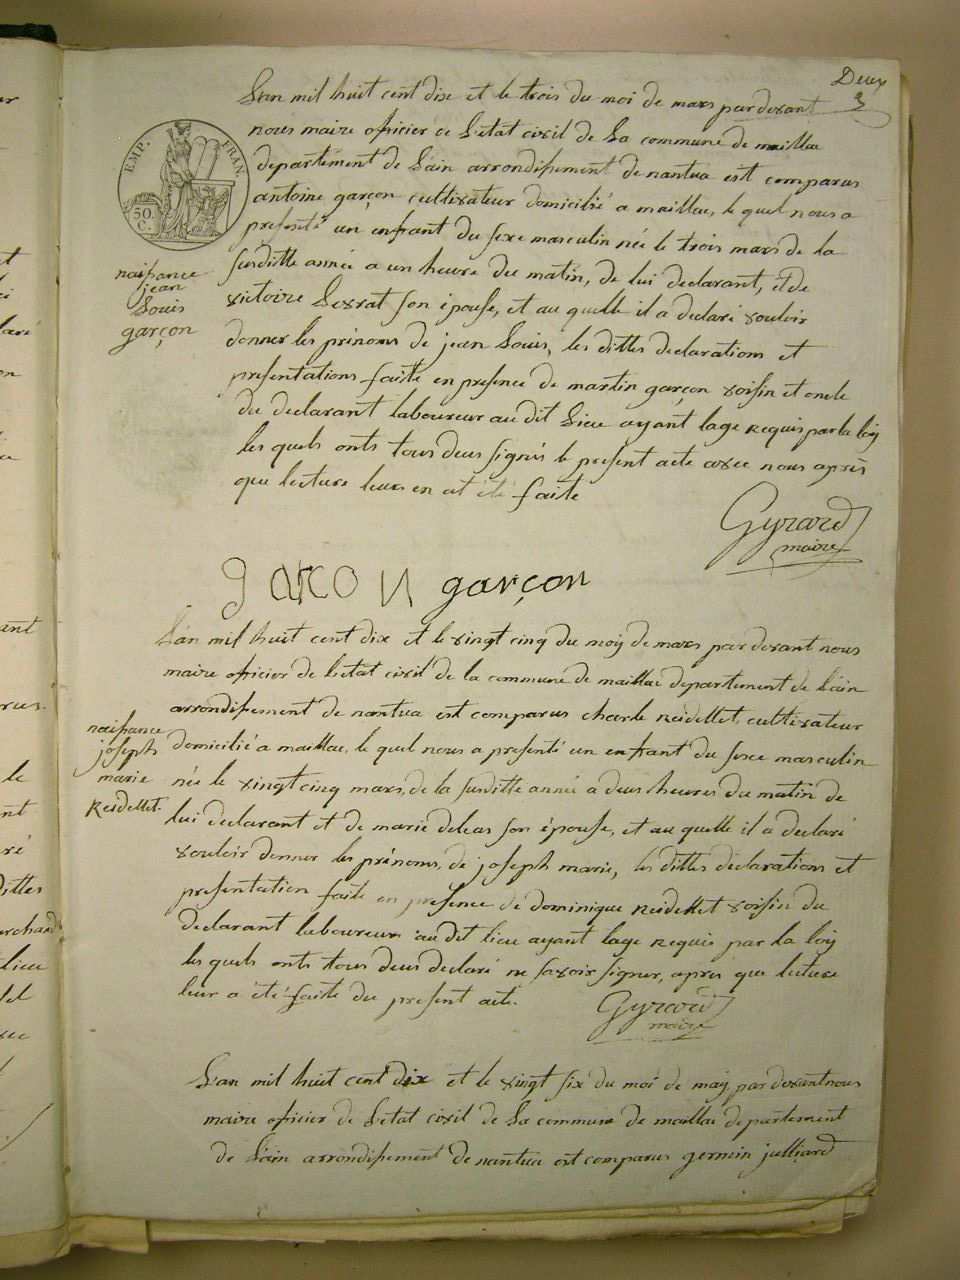 Deux
3
L'an mil huit cent dix et le trois du moi de mars par devant
nous maire officier de l'etat civil de la commune de maillac
departement de l'ain arrondissement de nantua est comparus
antoine garçon cultivateur domicilié a maillac, le quel nous a
presenté un enfrant du sexe masculin née le trois mars de la
susditte année a un heure du matin, de lui declarant, et de
victoire Levrat son épouse, et au quelle il a declaré vouloir
donner les prénoms de jean Louis, les dittes declarations et
presentations faite en presence de martin garçon voisin et oncle
du declarant laboureur au dit Lieu ayant lage requis par la loy
les quels onts tous deus signés le present acte avec nous après
que lecture leurs en at été faite
EMP. FRAN.
50.
C.
naissance
jean
Louis
garçon
Gyrard
maire
garcon garçon
L'an mil huit cent dix et le vingt cinq du moy de mars par devant nous
maire officier de l'etat civil de la commune de maillac departement de L'ain
arrondissement de nantua est comparus charle Reidellet, cultivateur
domicilié a maillac, le quel nous a presenté un enfrant du sexe masculin
née le vingt cinq mars, de la susditte année a deus heures du matin de
lui declarant et de marie deleas son épouse, et au quelle il a declaré
vouloir donner les prénoms, de joseph marie, les dittes déclarations et
presentation faite en presence de dominique Reidellet voisin du
declarant laboureur au dit lieu ayant lage requis par la loy
les quels onts tous deus declaré ne savoir signer, apres que lecture
leur a été faite du present acte.
naissance
joseph
marie
Reidellet.
Gyrard
maire
L'an mil huit cent dix et le vingt six du moi de may par devant nous
maire officier de L'etat civil de La commune de maillac departement
de L'ain arrondissement de nantua est comparus germain julliard